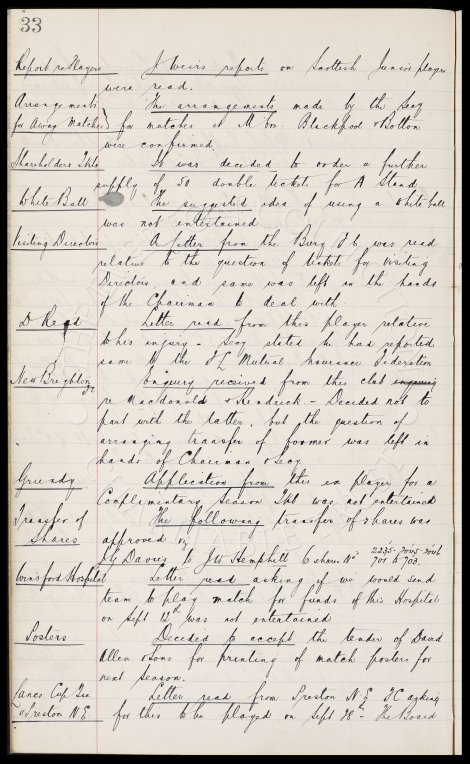 33
Report re Players J Weirs reports on Scottish Junior players
were read.
Arrangements The arrangements made by the Secy
for Away Matches } for matches at M'Bro. Blackpool & Bolton
were confirmed.
Shareholders Tkts It was decided to order a further
supply of 50 double tickets for A Stand.
White Ball The suggested idea of using a white ball
was not entertained
Visiting Directors A letter from the Bury F.C. was read
relative to the question of tickets for visiting
Directors and same was left in the hands
of the Chairman to deal with.
D Reid Letter read from this player relative
to his injury - Secy stated he had reported
same to the FL Mutual Insurance Federation
New Brighton FC Enquiry received from this club
re Macdonald & Kendrick - Decided not to
part with the latter, but the question of
arranging transfer of foormer was left in
hands of Chairman & Secy
Grundy Application from this ex player for a
Complimentary Season Tkt was not entertained
Transfer of The following transfer of shares was
Shares approved viz
Davies to JW Hemphill 6 shares Nos 2235. 7045. 7046
701 to 703.
Winsford Hospital Letter read asking if we would send
team to play match for funds of this Hospital
on Sept 12th was not entertained
Posters Decided to accept the tender of David
Allen & Sons for printing of match posters for
next season.
Lancs Cup Tie Letter read from Preston N.E FC asking
v Preston N E for this to be played on Sept 28 - The Board